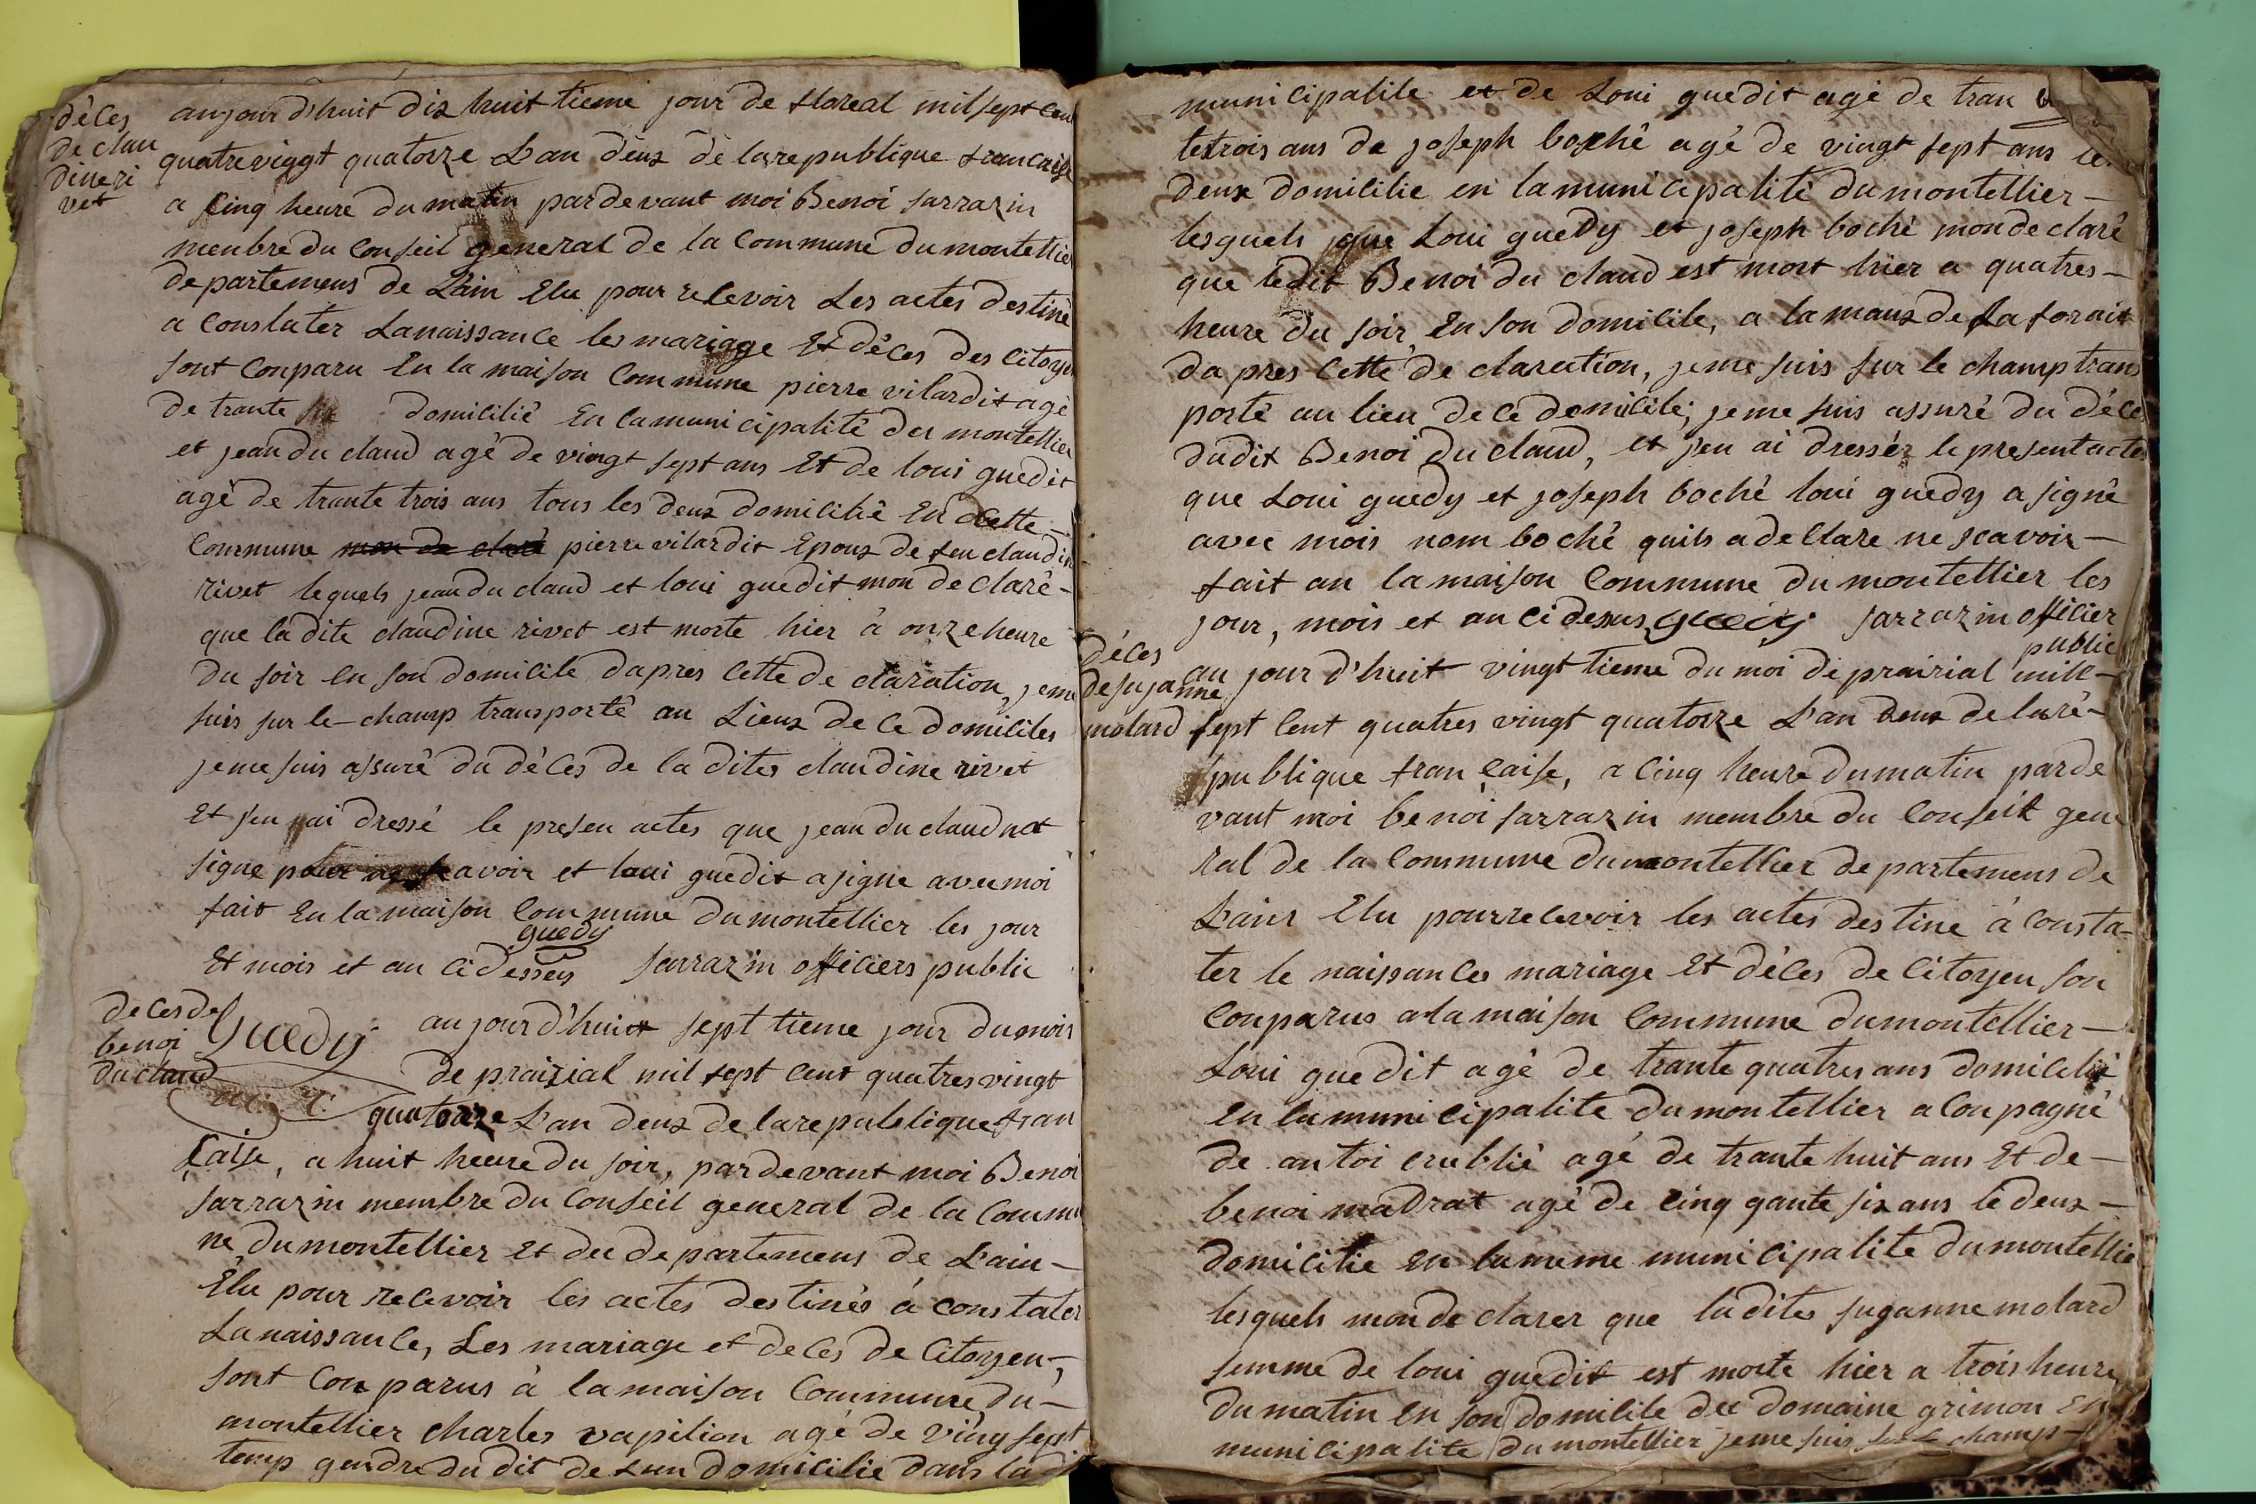 déces
de clau
dine ri
vet
aujour d'huit dix huit tieme jour de floreal mil sept cen
quatre viggt quatorze L'an deux de la republique francaise
a cinq heure du matin par devant moi Benoi sarrazin
menbre du Conseil general de la Commune du montellier
departemens de L'ain Elu pour recevoir Les actes destiné
a constater La naissance les mariage Et déces des citoye
sont Conparu En la maison Commune pierre vilardit agé
de trante six domicilié En la municipalité du montellier
et jean du claud agé de vingt sept ans Et de loui guedit
agé de trante trois ans tous les deux domicilié En cette
Commune mon de claré pierre vilardit Epoux de feu claudine
rivet lequels jean du claud et loui guedit mon de claré
que la dite claudine rivet est morte hier à onze heure
du soir En son domicile dapres Cette de claration, je me
suis sur le champ transporté au Lieux de ce domiciles
je me suis assuré du déces de la dites claudine rivet
Et j'en nai dressé le presen actes que jean du claud nat
signe pour ne scavoir et loui guedit a signe avec moi
fait En la maison Commune du montellier les jour
guedy
Et mois et an ci dessus sarrazin officiers public
deces de
benoi
du claud
Guedy
aujour d'huit sept tieme jour du mois
de prairial mil sept cent quatres vingt
quatorze L'an deux de la republique fran
çaise, a huit heure du soir, par devant moi Benoi
sarrazin membre du Conseil general de la Commu
ne du montellier et du departemens de L'ain
Élu pour recevoir les actes destinés à constater
La naissance, Les mariage et deces de Citoyen,
sont Conparus à la maison Commune du
montellier charles vapilion agé de ving sept
temp gendre du dit defun domicilie dans la
municipalite et de Loui guedit agé de tran
te trois ans de joseph boché agé de vingt sept ans le
deux domicilie en la municipalité du montellier
lesquels que Loui guedy et joseph boché mon de claré
que ledit Benoi du claud est mort hier a quatres
heure du soir En son domicile, a la maux de La forait
da pres Cette de claration, je me suis sur le champ trans
porté au lieu de ce domicile; je me suis assuré du déce
du dit Benoi du claud, et j'en ai dressér le present actes
que Loui guedy et joseph boché loui guedy a signé
avec mois nom boché quils a de Clare ne scavoir
fait an la maison Commune du montellier les
jour, mois et an ci desus guedy sarrazin officier
public
Déces
de suzanne
molard
au jour d'huit vingt tieme du moi de prairial mill
sept Cent quatres vingt quatorze L'an deux de la ré
publique fran çaise, a Cinq heure du matin par de
vant moi benoi sarrazin membre du Conseil gene
ral de la Commune du montellier departemens de
L'ain Elu pour recevoir les actes destine à consta
ter le naissances mariage Et déces de Citoyen son
Conparus a la maison Commune du montellier
Loui guedit agé de trante quatres ans domicilié
En la municipalite du montellier a Conpagné
de antoi crublié agé de trante huit ans Et de
benoi madrat agé de Cinq gante six ans le deux
domicilie En la meme municipalite du montellie
lesquels mon de clarer que la dites suganne molard
femme de loui guedit est morte hier a trois heure
du matin En son domicile du domaine grimon En
municipalite du montellier je me suis sur le champ